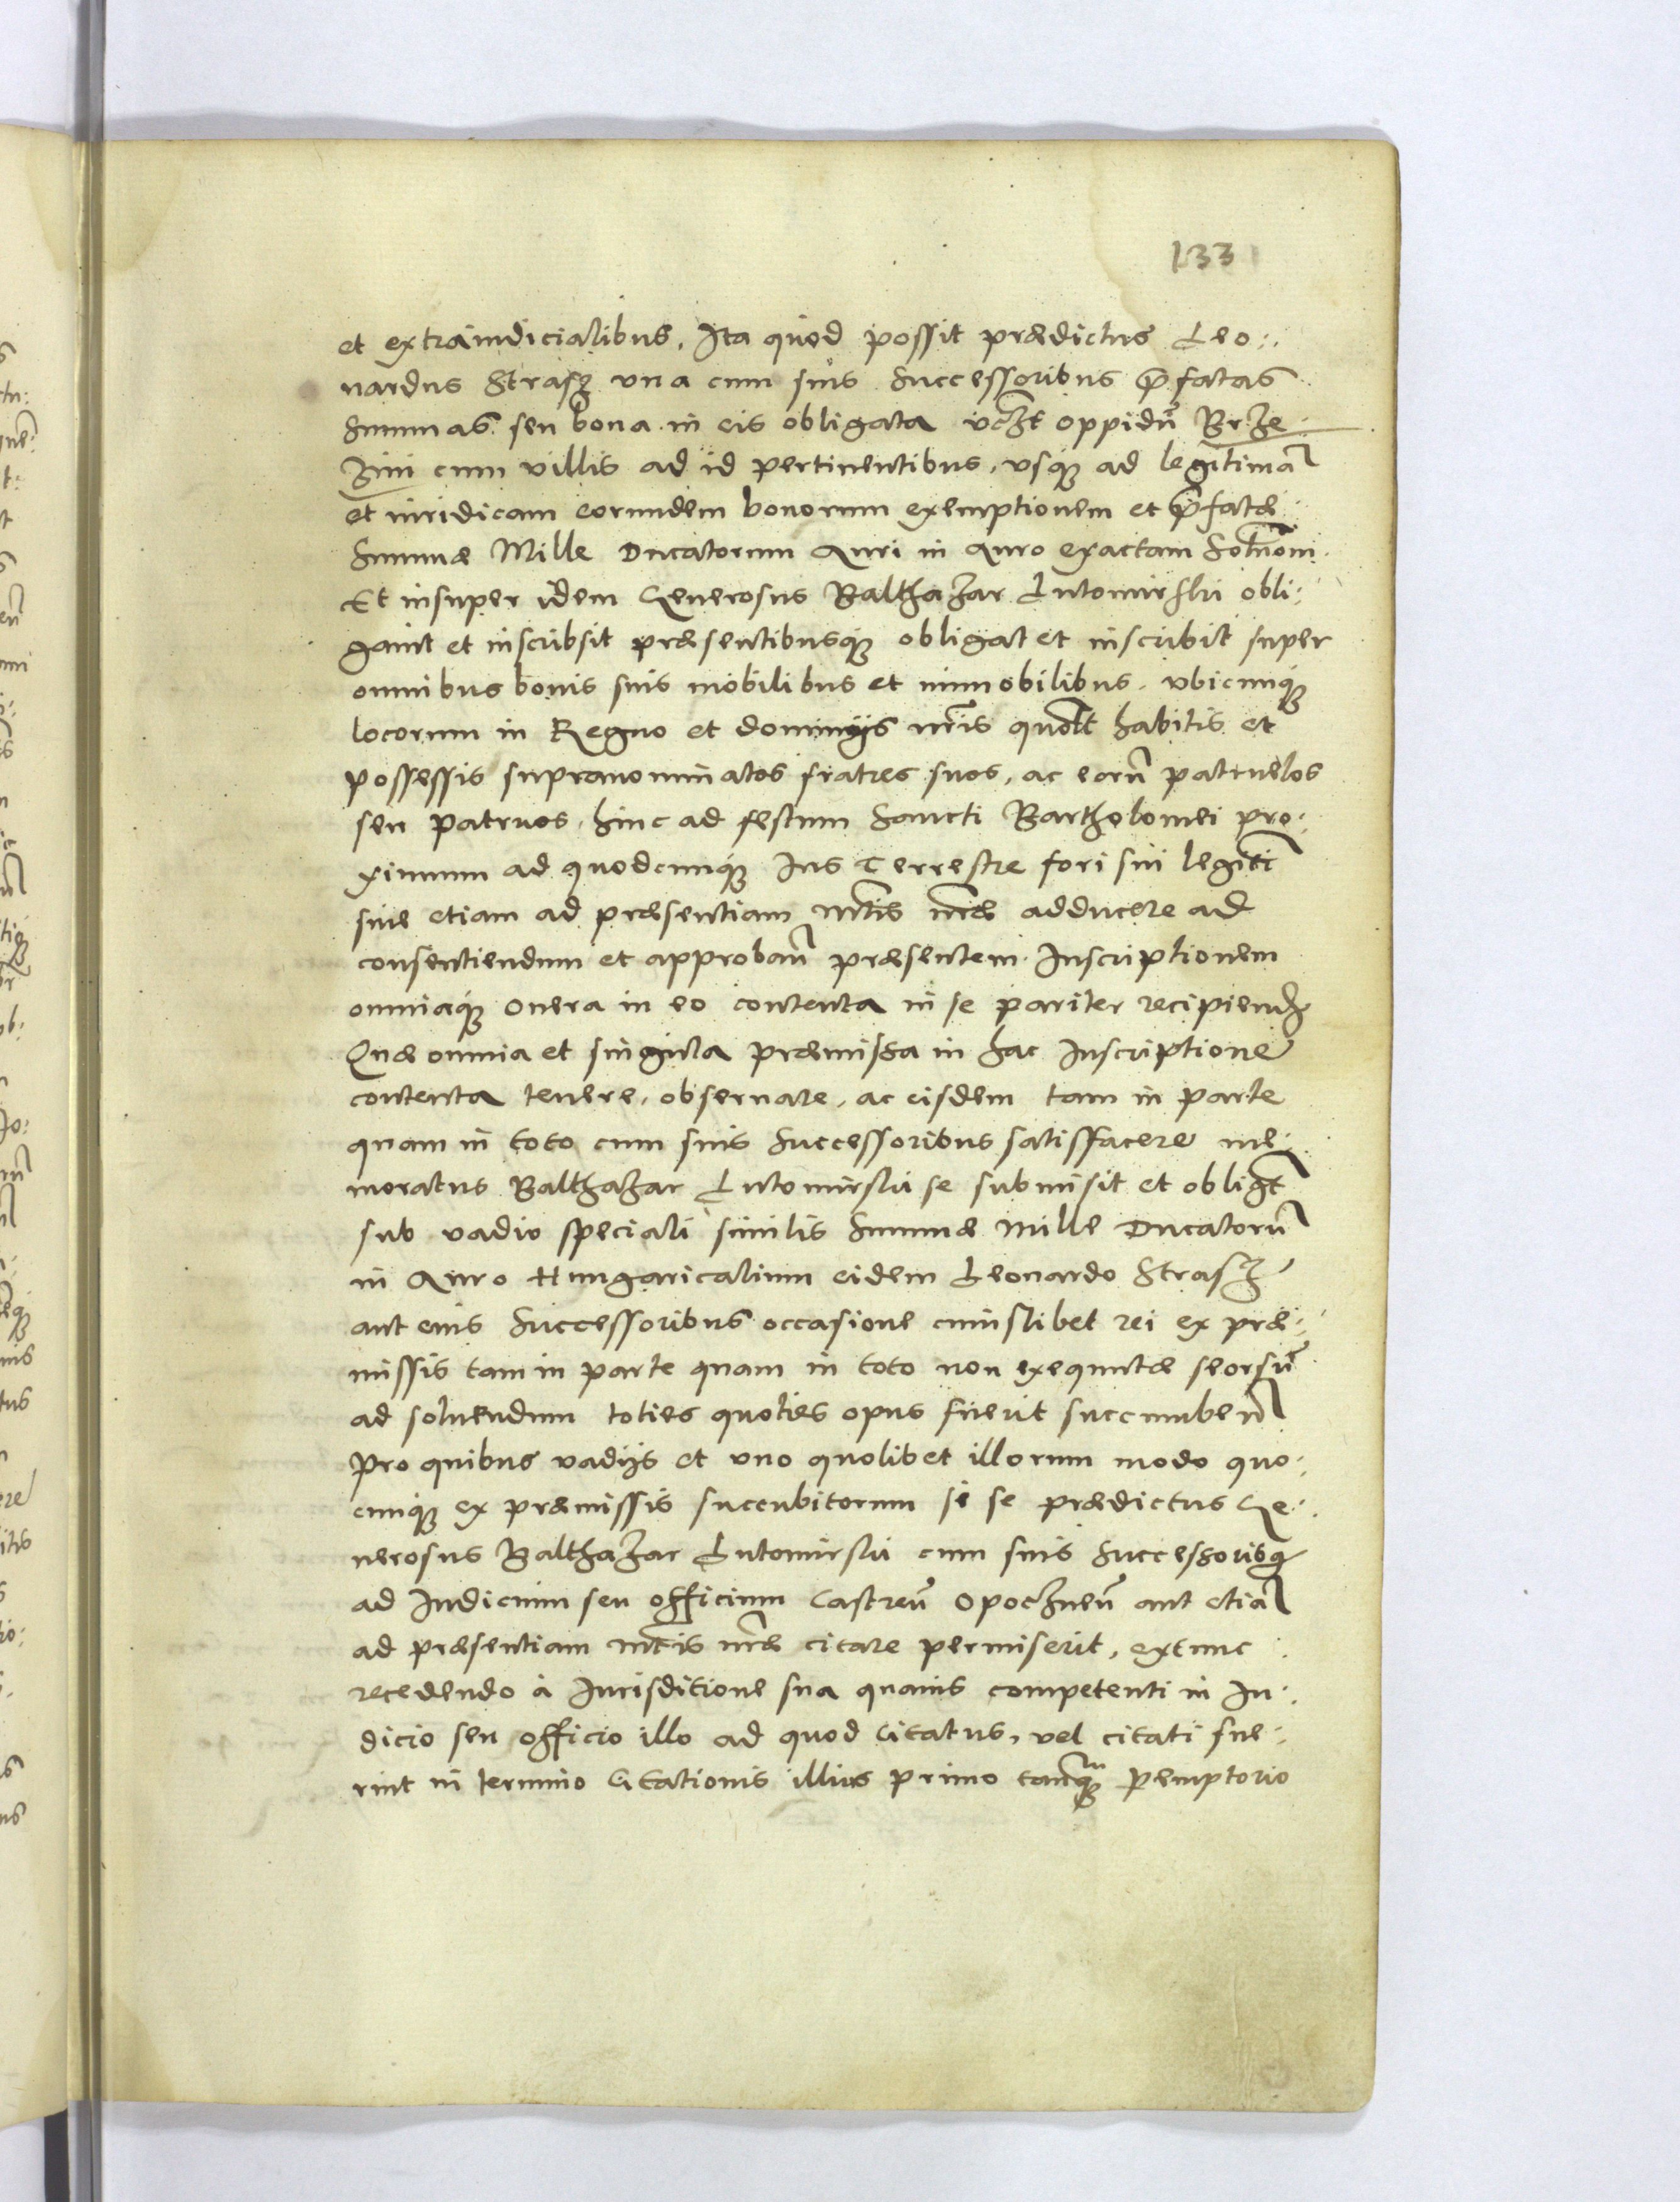 133
et extraiudicialibus. Ita quod possit prædictus Leo:
nardus Strasz una cum suis Successoribus p̄fatas
Summas seu bona in eis obligata vczt oppidū Brze
zini cum villis ad id pertinentibus, usq; ad legitimā
et iuridicam eorundem bonorum exemptionem et p̄fatæ
Summæ Mille Ducatorum Auri in auro exactam Solūtōni.
Et insuper idem Generosus Balthazar Lutomirski obli:
gauit et inscribsit præsentibusq; obligat et inscribit super
omnibus bonis suis mobilibus et immobilibus, ubicunq;
locorum in Regno et dominijs nr̄is quolt habitis et
possessis supranominatos fratres suos, ac eorū patruelos
seu patruos, hinc ad festum Sancti Bartholomei pro:
ximum ad quodcunq; Ius Terrestre fori sui legiti
siue etiam ad præsentiam Mtis nræ adducere ad
consentiendum et approban̄ præsentem Inscriptionem
omniaq; onera in eo contenta in se pariter recipiend
Quæ omnia et singula præmissa in hac Inscriptione
contenta tenere, obseruare, ac eisdem tam in parte
quam in toto cum suis Successoribus satisfacere me:
moratus Balthazar Lutomirski se submisit et obligt
sub vadio speciali similis Summæ Mille Ducatorū
in Auro Hungaricalium eidem Leonardo Strasz
aut eius Successoribus occasione cuiuslibet rei ex præ:
missis tam in parte quam in toto non exequutæ seorsū
ad soluendum toties quoties opus fuerit succumben̄
Pro quibus vadijs et uno quolibet illorum modo quo:
cunq; ex præmissis succubitorum si se prædictus Ge:
nerosus Balthazar Lutomirski cum suis Successoribq
ad Iudicium seu officium Castreñ Opoczneñ aut etiā
ad præsentiam Mtis nræ citare permiserit, extunc
recedendo à Iurisditione sua quauis competenti in Iu:
dicio seu officio illo ad quod Citatus, vel citati fue:
rint in termino Citationis illius primo tanq̄ pemptorio